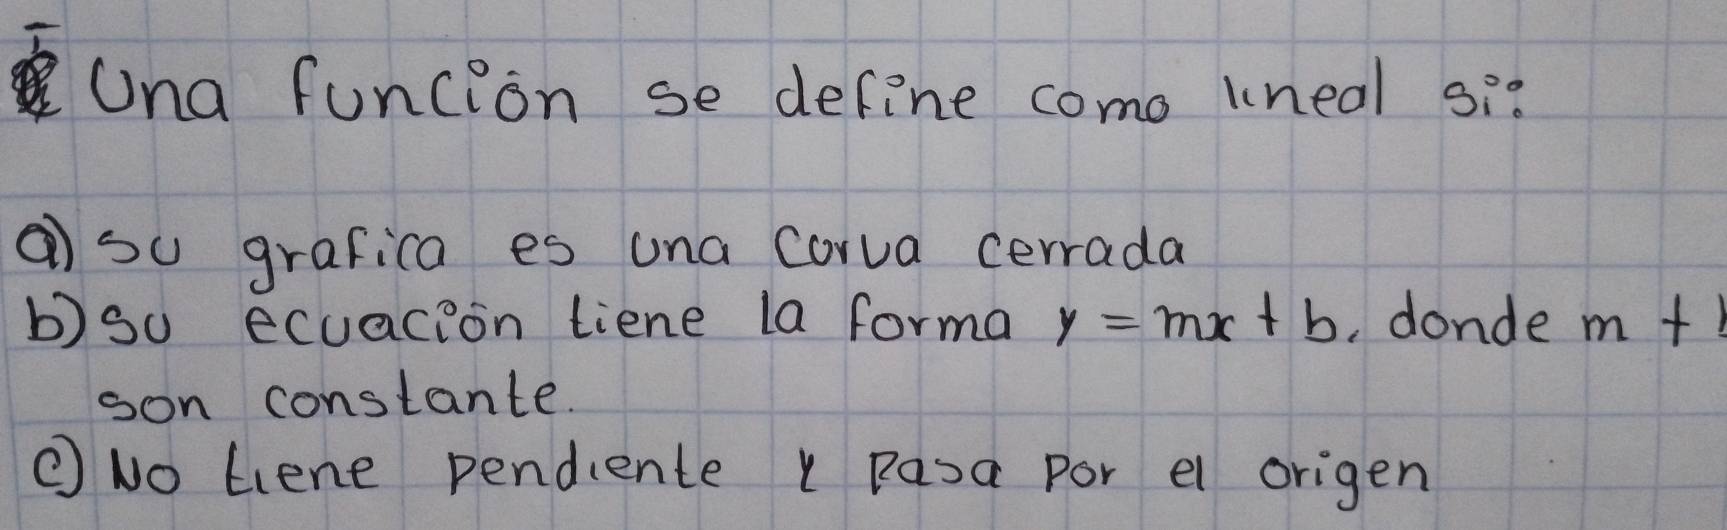 Una función se define como lineal si:
a) su grafica es una curva cerrada
b) su ecuación tiene la forma y = mx + b, donde m +
son constante.
c) No tiene pendiente y pasa por el origen